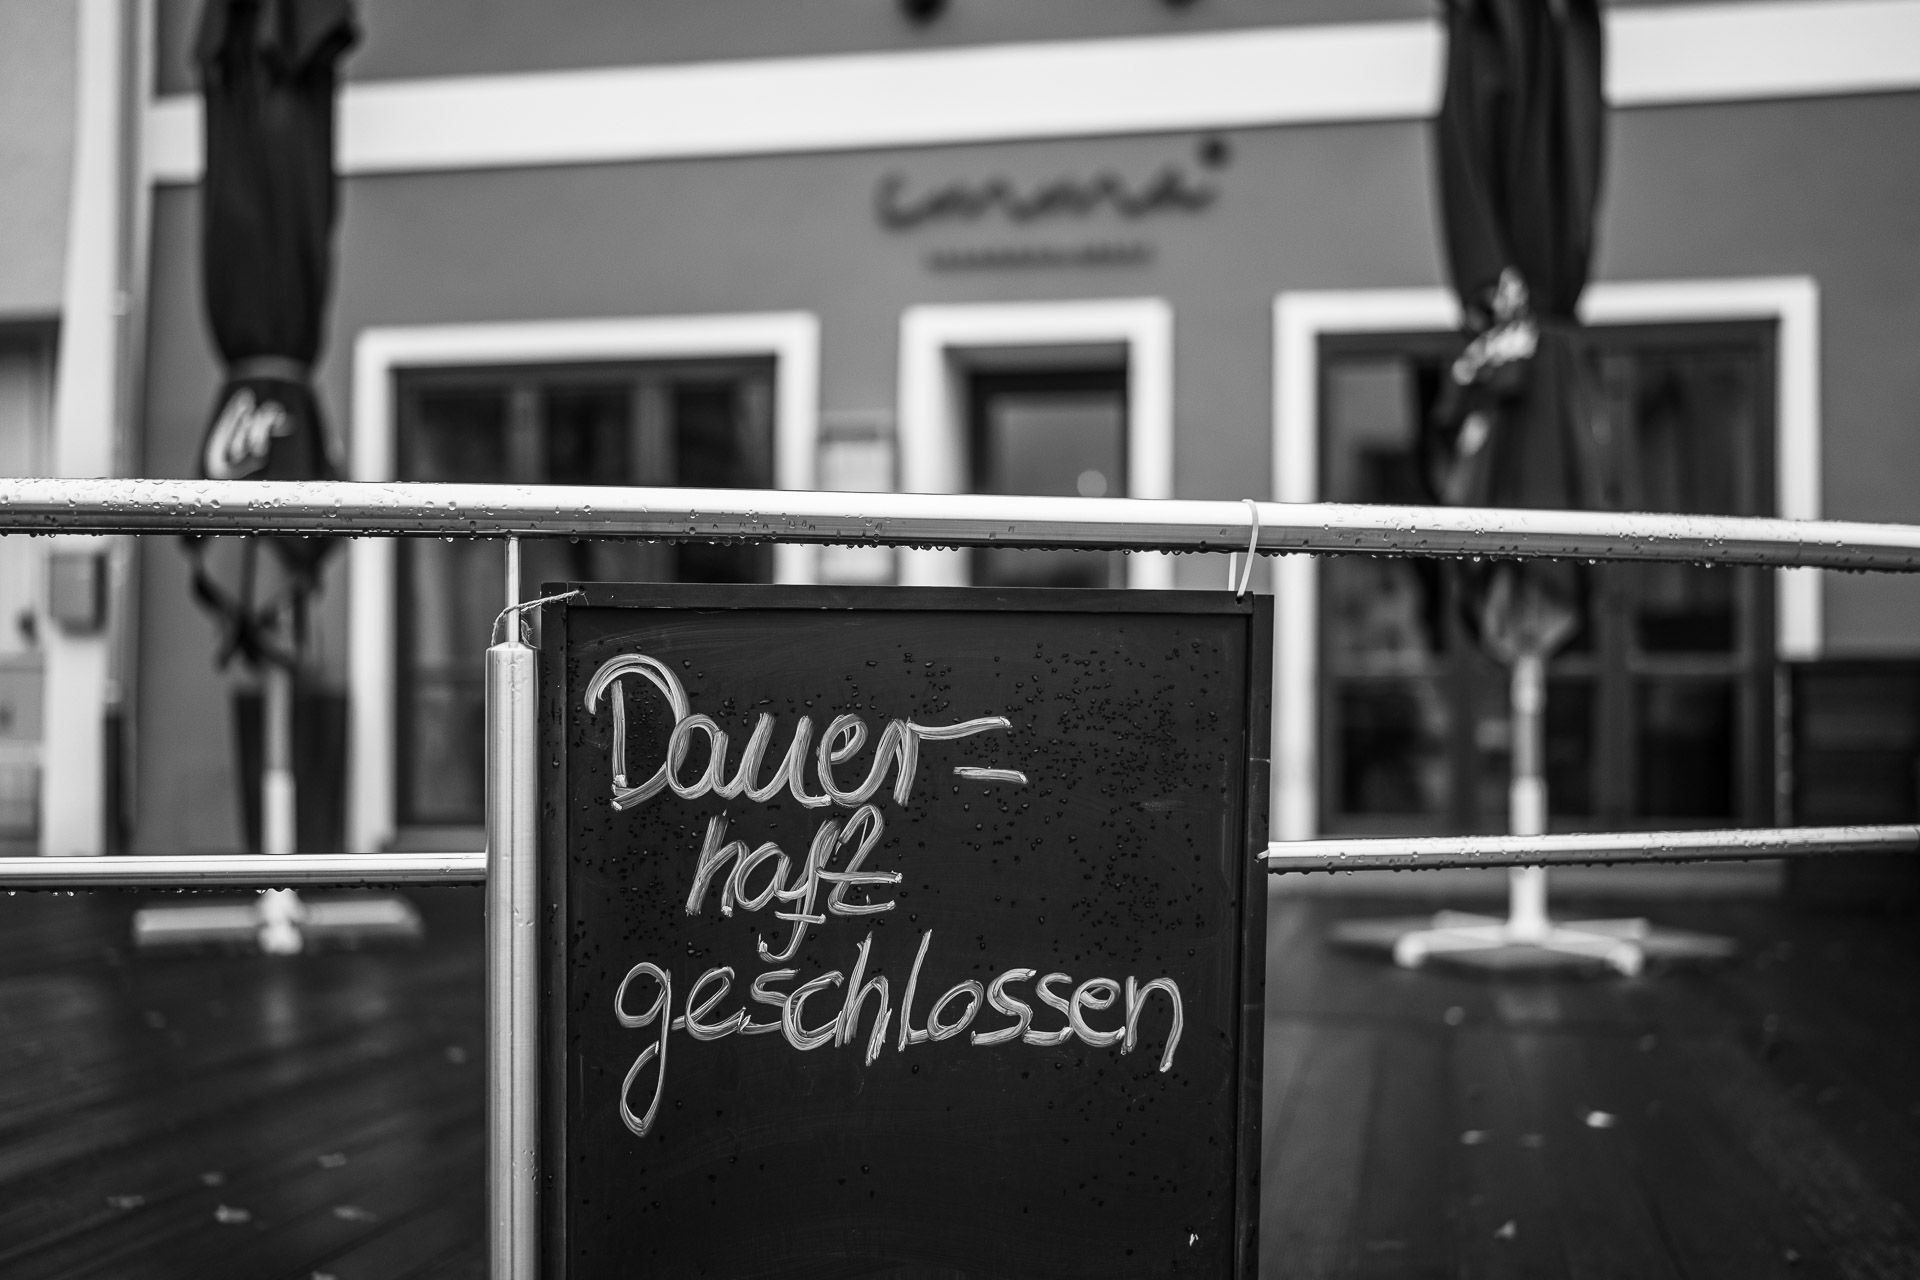 Dauer=
haft
geschlossen